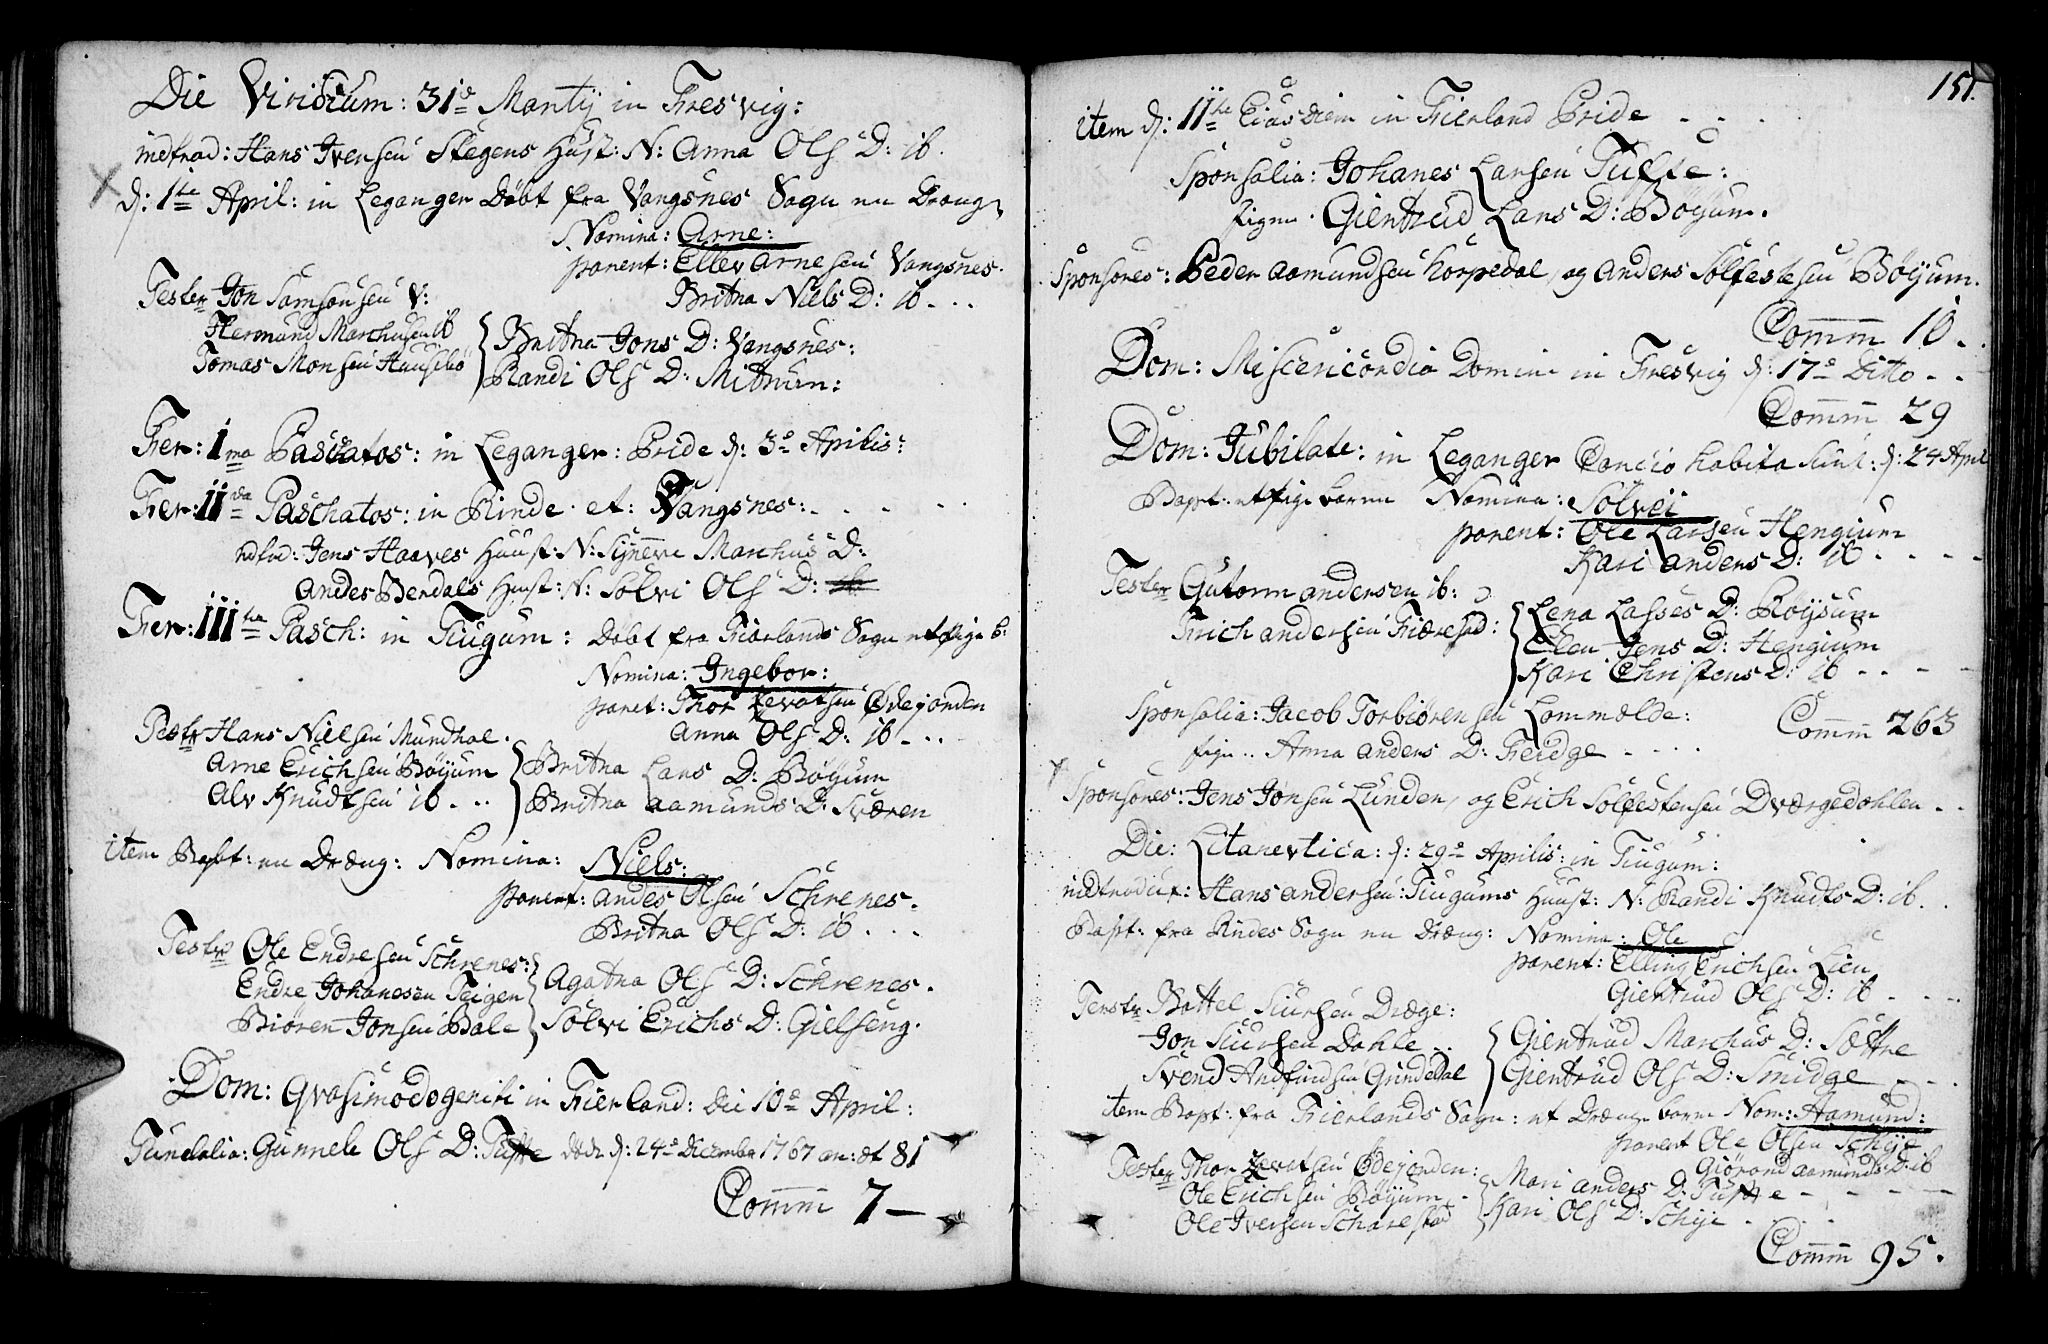 Die Viridium: 31te Martij in Fresvig:
indtrod: Hans Ivensen Skegens Hust: N: Anna Ols D: ib.
d: 1te April: in Leganger Döbt fra Vangsnes Sogn en Dreng
Nomina: Arne:
parent: Ellev Arnesen Vangsnes.
Britna Niels D: ib. ..
Testr Jon Samsonsen V:
Hermund Marchusen ib
Tomas Monsen Hausebö
Britna Jons D: Vangsnes:
Randi Ols D: Mittun:
Fer: 1ma Paschatos: in Leganger: Pride d: 3e Aprilis:
Fer: IIda Paschatos: in Rinde et: Vangsnes: . - - - -
indtrod: Jens Haaves Huust: N: Synnevi Marchus D:
Andes Berdals Hust: N: Solvi Ols D: ib
Fer: IIItia Pasch: in Tiugum: Döbt fra Fierlands Sogn et pige b:
Nomina: Ingebor:
paret: Thor Levatsen Ödejorden
Anna Ols D: ib - ..
Testr Hans Nielsen Mundhal.
Arne Erichsen Böyum
Alv Knudtsen ib - ..
Britna Lars D: Böyum
Britna Aamunds D: Sværen
item Bapt: en Dræng: Nomina: Niels:
parent: Andes Olsen Schrenes.
Britna Ols D: ib . . .
Testr Ole Endresen Schrenes:
Endre Johanesen Teigen
Biören Jonsen Bale
Agatna Ols D: Schrenes.
Solvi Erichs D: Gielseng.
Dom: Qvasimodogeniti in Fierland: Die 10de April:
Funebalia: Gunnele Ols D: Tufte döde d: 24de Decembr 1767 an: æt 81
Comm 7 —
151.
item d: 11te Ejus Diem in Fierland Pride - - - .
Sponsalia: Johanes Larsen Tufte:
pigen . Giertrud Lars D: Böyum.
Sponsores: Peder Aamundsen Horpedal, og Anders Solfestesen Böyum.
Comm 10.
Dom: Misericordia Domini in Fresvig d: 17de Ditto - -
Comm 29
Dom: Jubilate: in Leganger Concio habita sunt: d: 24 April
Bapt: et pige baren Nomina: Solvei
parent: Ole Larsen Hengium
Kari Anders D: ib - - - -
Testr Gutorm Andersen ib:
Erich Andersen Fiærestad:
Lena Lasses D: Röysum
Elen Jens D: Hengium
Kari Christens D: ib . . - -
Sponsalia: Jacob Torbiörensen Lommælde:
Comm 263
pigen .. Anna Anders D: Feidge - . . . .
Sponsores: Jens Jonsen Lunden, og Erich Solfestensen Dværgedahlen - -
Die: Litanevtica: d: 29de Aprilis: in Tiugum:
indtroduct: Hans Andersen: Tiugums Huust: N: Randi Knudts D: ib.
Bapt: fra Rindes Sogn en Dræng: Nomina: Ole
parent: Elling Erichsen Lien
Giertrud Ols D: ib - - -
Terstr Bottel Siursen Dræge:
Jon Siursen Dahle ..
Svend Andfindsen Grindedal
Giertrud Marchus D: Sættre
Giertrud Ols D: Smidge - - .
item Bapt: fra Fierlands Sogn: et Drænge baren Nom: Aamund:
parent Ole Olsen Scheje
Giörond Aamunds D: ib
Tester Thor Levatsen Ödejorden:
Ole Erichsen Böyum.
Ole Iversen Scharestad
Mari Anders D: Tufte - - - -
Kari Ols D: Scheje . . .
Comm 95.